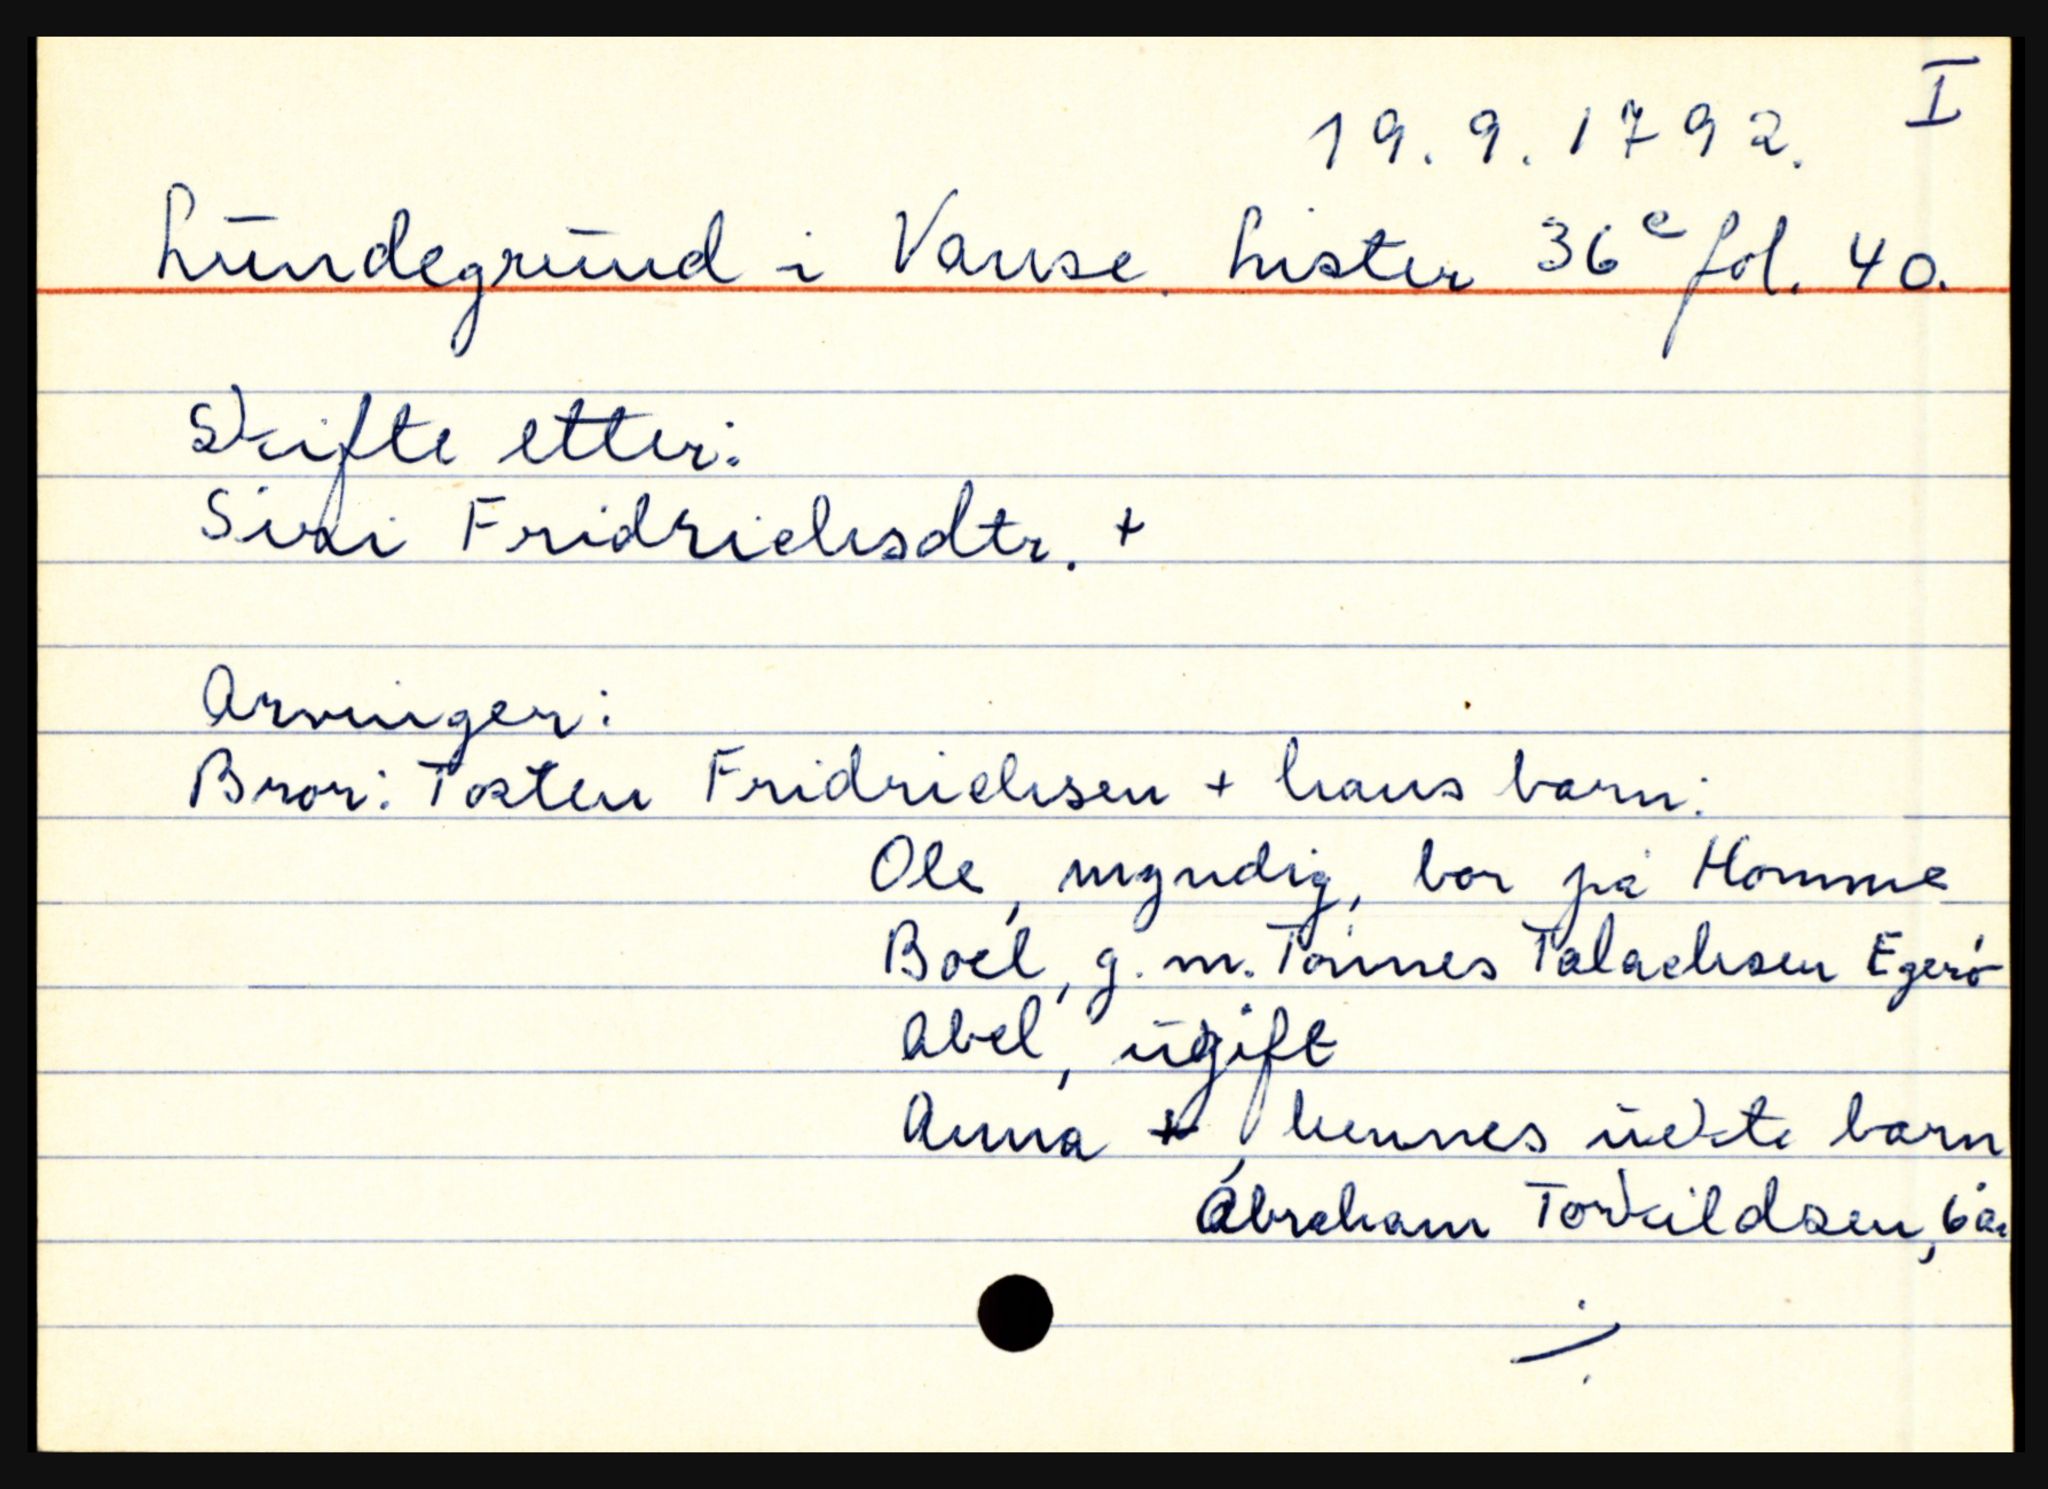 I
19.9.1792.
Lundegrund i Vanse. Lister 36e fol. 40.
Skifte etter:
Siri Fridrichsdtr. +
Arvinger:
Bror: Tosten Fridrichsen + hans barn:
Ole, myndig, bor på Homme
Boel, g.m. Tønnes Talachsen Egerø
Abel, ugift
Anna +, hennes uekte barn
Abraham Torkildsen, 6 år